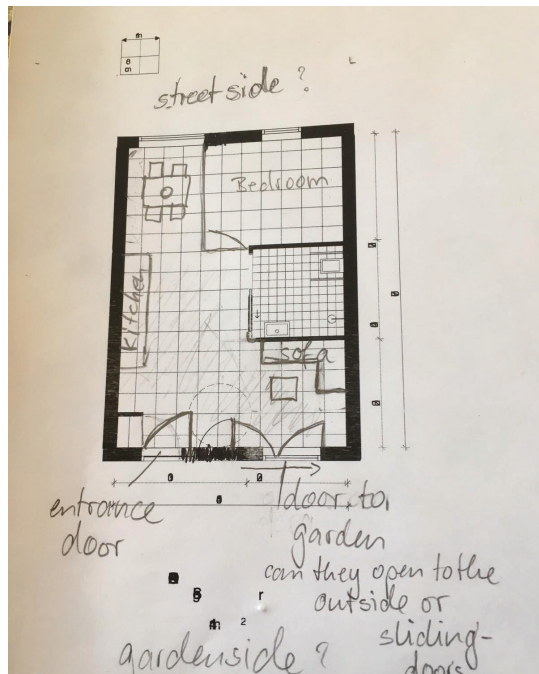 street side ?
Bedroom
kitchen
sofa
entrance
door
door to
garden
can they open to the
outside or
sliding-
doors
gardenside ?